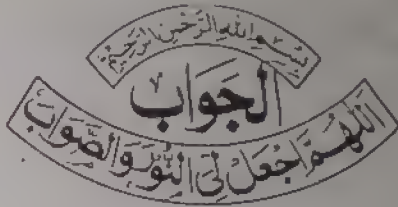 بِسْمِ اللهِ الرَّحْمٰنِ الرَّحِيْمِ
اَلْجَوَابْ
اَللّٰهُمَّ اجْعَلْ لِیَ النُّوْرَ وَالصَّوَابَ